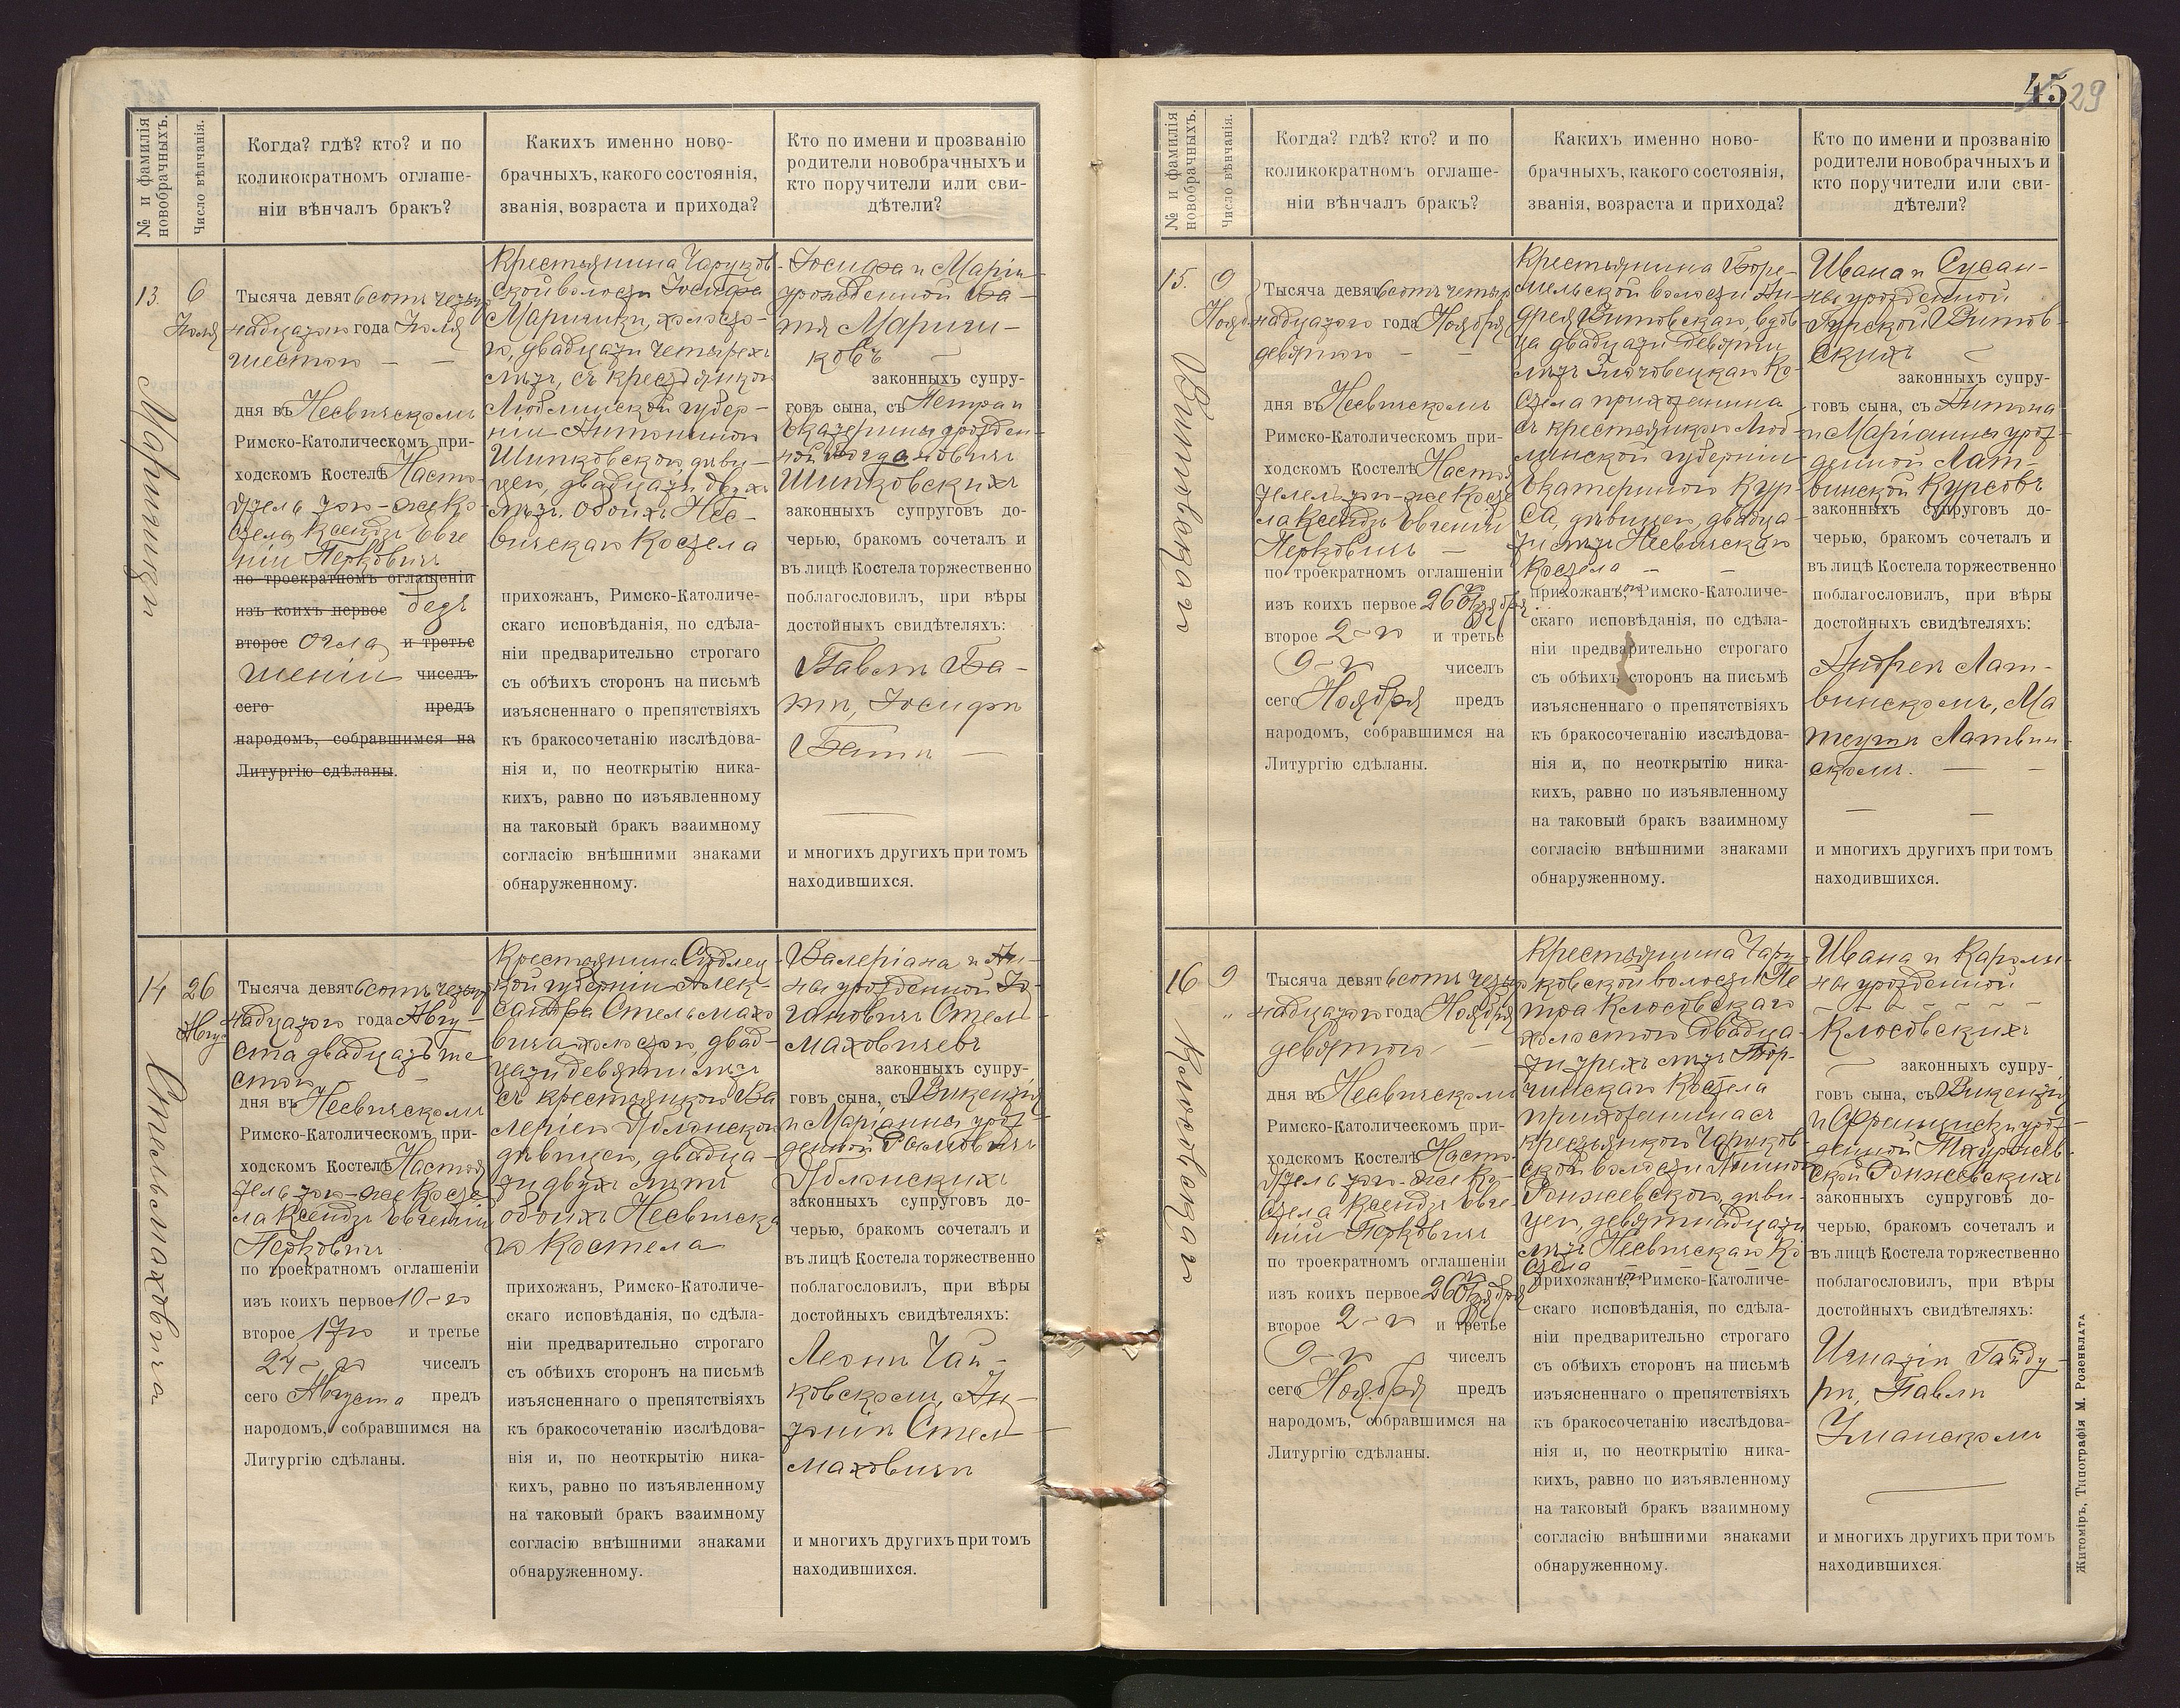 № и фамилія новобрачныхъ.
Число вѣнчанія.
Когда? гдѣ? кто? и по
коликократномъ оглаше-
ніи вѣнчалъ бракъ?
Какихъ именно ново-
брачныхъ, какого состоянія,
званія, возраста и прихода?
Кто по имени и прозванію
родители новобрачныхъ и
кто поручители или сви-
дѣтели?
13.
6
Іюля
Маришки
Тысяча девятьсотъ четыр
надцатаго года Іюля
шестого
дня въ Несвичскомъ
Римско-Католическомъ при-
ходскомъ Костелѣ Насто-
ятель того-же Ко-
стела Ксендзъ Евге
ній Перковичъ
по троекратномъ оглашеніи
изъ коихъ первое безъ
второе огла и третье
шеній чиселъ
сего предъ
народомъ, собравшимся на
Литургію сдѣланы.
Крестьянина Чаруков-
ской волости Іосифа
Маришки, холосто-
го, двадцати четырехъ
лѣтъ, съ крестьянкой
Люблинской губер-
ніи Антониной
Шипковской, дѣви-
цей, двадцати двухъ
лѣтъ. Обоихъ Нес-
вичскаго Костела
прихожанъ, Римско-Католиче-
скаго исповѣданія, по сдѣла-
ніи предварительно строгаго
съ обѣихъ сторонъ на письмѣ
изъясненнаго о препятствіяхъ
къ бракосочетанію изслѣдова-
нія и, по неоткрытію ника-
кихъ, равно по изъявленному
на таковый бракъ взаимному
согласію внѣшними знаками
обнаруженному.
Іосифа и Маріи
урожденной Ба-
тія Мариш-
ковъ
законныхъ супру-
говъ сына, съ Петра и
Екатерины урожден-
ной Богдановичъ
Шипковскихъ
законныхъ супруговъ до-
черью, бракомъ сочеталъ и
въ лицѣ Костела торжественно
поблагословилъ, при вѣры
достойныхъ свидѣтеляхъ:
Павелъ Ба-
тіи, Іосифъ
Батіи
и многихъ другихъ при томъ
находившихся.
14
26
Авгус
Стельмаховича
Тысяча девятьсотъ четыр
надцатаго года Авгу-
ста двадцать ше
стого
дня въ Несвичскомъ
Римско-Католическомъ при-
ходскомъ Костелѣ Настоя
тель того-же Косте
ла Ксендзъ Евгеній
Перковичъ
по троекратномъ оглашеніи
изъ коихъ первое 10-го
второе 17го и третье
24-го чиселъ
сего Августа предъ
народомъ, собравшимся на
Литургію сдѣланы.
Крестьянина Сѣдлец
кой губерніи Алек-
сандра Стельмахо
вича холостого, двад-
цати девяти лѣтъ
съ крестьянкой Ва
леріей Яблонской
дѣвицей, двадца-
ти двухъ лѣтъ
обоихъ Несвичска
го Костела
прихожанъ, Римско-Католиче-
скаго исповѣданія, по сдѣла-
ніи предварительно строгаго
съ обѣихъ сторонъ на письмѣ
изъясненнаго о препятствіяхъ
къ бракосочетанію изслѣдова-
нія и, по неоткрытію ника-
кихъ, равно по изъявленному
на таковый бракъ взаимному
согласію внѣшними знаками
обнаруженному.
Валеріана и Ан-
ны урожденной
Стель
маховичевъ
законныхъ супру-
говъ сына, съ Викентія
и Маріанны урож-
денной
Яблонскихъ
законныхъ супруговъ до-
черью, бракомъ сочеталъ и
въ лицѣ Костела торжественно
поблагословилъ, при вѣры
достойныхъ свидѣтеляхъ:
Леонъ Чай-
ковскомъ, Ан-
тоніи Стель
маховичъ
и многихъ другихъ при томъ
находившихся.
45 29
№ и фамилія новобрачныхъ.
Число вѣнчанія.
Когда? гдѣ? кто? и по
коликократномъ оглаше-
ніи вѣнчалъ бракъ?
Какихъ именно ново-
брачныхъ, какого состоянія,
званія, возраста и прихода?
Кто по имени и прозванію
родители новобрачныхъ и
кто поручители или сви-
дѣтели?
15.
9
Ноябр
Витовскаго
Тысяча девятьсотъ четыр
надцатаго года Ноября
девятого
дня въ Несвичскомъ
Римско-Католическомъ при-
ходскомъ Костелѣ Настоя
тель того-же Косте
ла Ксендзъ Евгеній
Перковичъ
по троекратномъ оглашеніи
изъ коихъ первое 26го Октября
второе 2-го и третье
9-го чиселъ
сего Ноября предъ
народомъ, собравшимся на
Литургію сдѣланы.
Крестьянина Боре-
мельской волости Ан-
дрея Витовскаго, вдов
ца двадцати девяти
лѣтъ Злочовецкаго Ко-
стела прихожанина
съ крестьянкой Люб-
линской губерніи
Екатериною Кур-
са, дѣвицей, двадца-
ти лѣтъ Несвичскаго
Костела
прихожанкой, Римско-Католиче-
скаго исповѣданія, по сдѣла-
ніи предварительно строгаго
съ обѣихъ сторонъ на письмѣ
изъясненнаго о препятствіяхъ
къ бракосочетанію изслѣдова-
нія и, по неоткрытію ника-
кихъ, равно по изъявленному
на таковый бракъ взаимному
согласію внѣшними знаками
обнаруженному.
Ивана и Сусан-
ны урожденной
Гурской Витов-
скихъ
законныхъ супру-
говъ сына, съ Антона
и Маріанны урож-
денной Лат-
винской Курсовъ
законныхъ супруговъ до-
черью, бракомъ сочеталъ и
въ лицѣ Костела торжественно
поблагословилъ, при вѣры
достойныхъ свидѣтеляхъ:
Андреи Лат-
винскомъ, Ма
теушъ Латвин-
скомъ.
и многихъ другихъ при томъ
находившихся.
16
9
"
Клосовскаго
Тысяча девятьсотъ четыр
надцатаго года Ноября
девятого
дня въ Несвичскомъ
Римско-Католическомъ при-
ходскомъ Костелѣ Насто-
ятель того-же Ко-
стела Ксендзъ Евге-
ній Перковичъ
по троекратномъ оглашеніи
изъ коихъ первое 26го Октября
второе 2-го и третье
9-го чиселъ
сего Ноября предъ
народомъ, собравшимся на
Литургію сдѣланы.
Крестьянина Чару
ковской волости Пе
тра Клосовскаго
холостого двадца-
ти трехъ лѣтъ Тор-
чинскаго Костела
прихожанина съ
крестьянкою Чаруков-
ской волости Анной
Ронжевскою, дѣви-
цей, девятнадцати
лѣтъ Несвичскаго Ко
стела
прихожанкой, Римско-Католиче-
скаго исповѣданія, по сдѣла-
ніи предварительно строгаго
съ обѣихъ сторонъ на письмѣ
изъясненнаго о препятствіяхъ
къ бракосочетанію изслѣдова-
нія и, по неоткрытію ника-
кихъ, равно по изъявленному
на таковый бракъ взаимному
согласію внѣшними знаками
обнаруженному.
Ивана и Кароли-
ны урожденной
Клосовскихъ
законныхъ супру-
говъ сына, съ Викентія
и Френциски урож-
денной
Ронжевскихъ
законныхъ супруговъ до-
черью, бракомъ сочеталъ и
въ лицѣ Костела торжественно
поблагословилъ, при вѣры
достойныхъ свидѣтеляхъ:
Игнатіи Гайду-
ри, Павли
Уманскомъ
и многихъ другихъ при томъ
находившихся.
Житоміръ, Типографія М. Розенблата